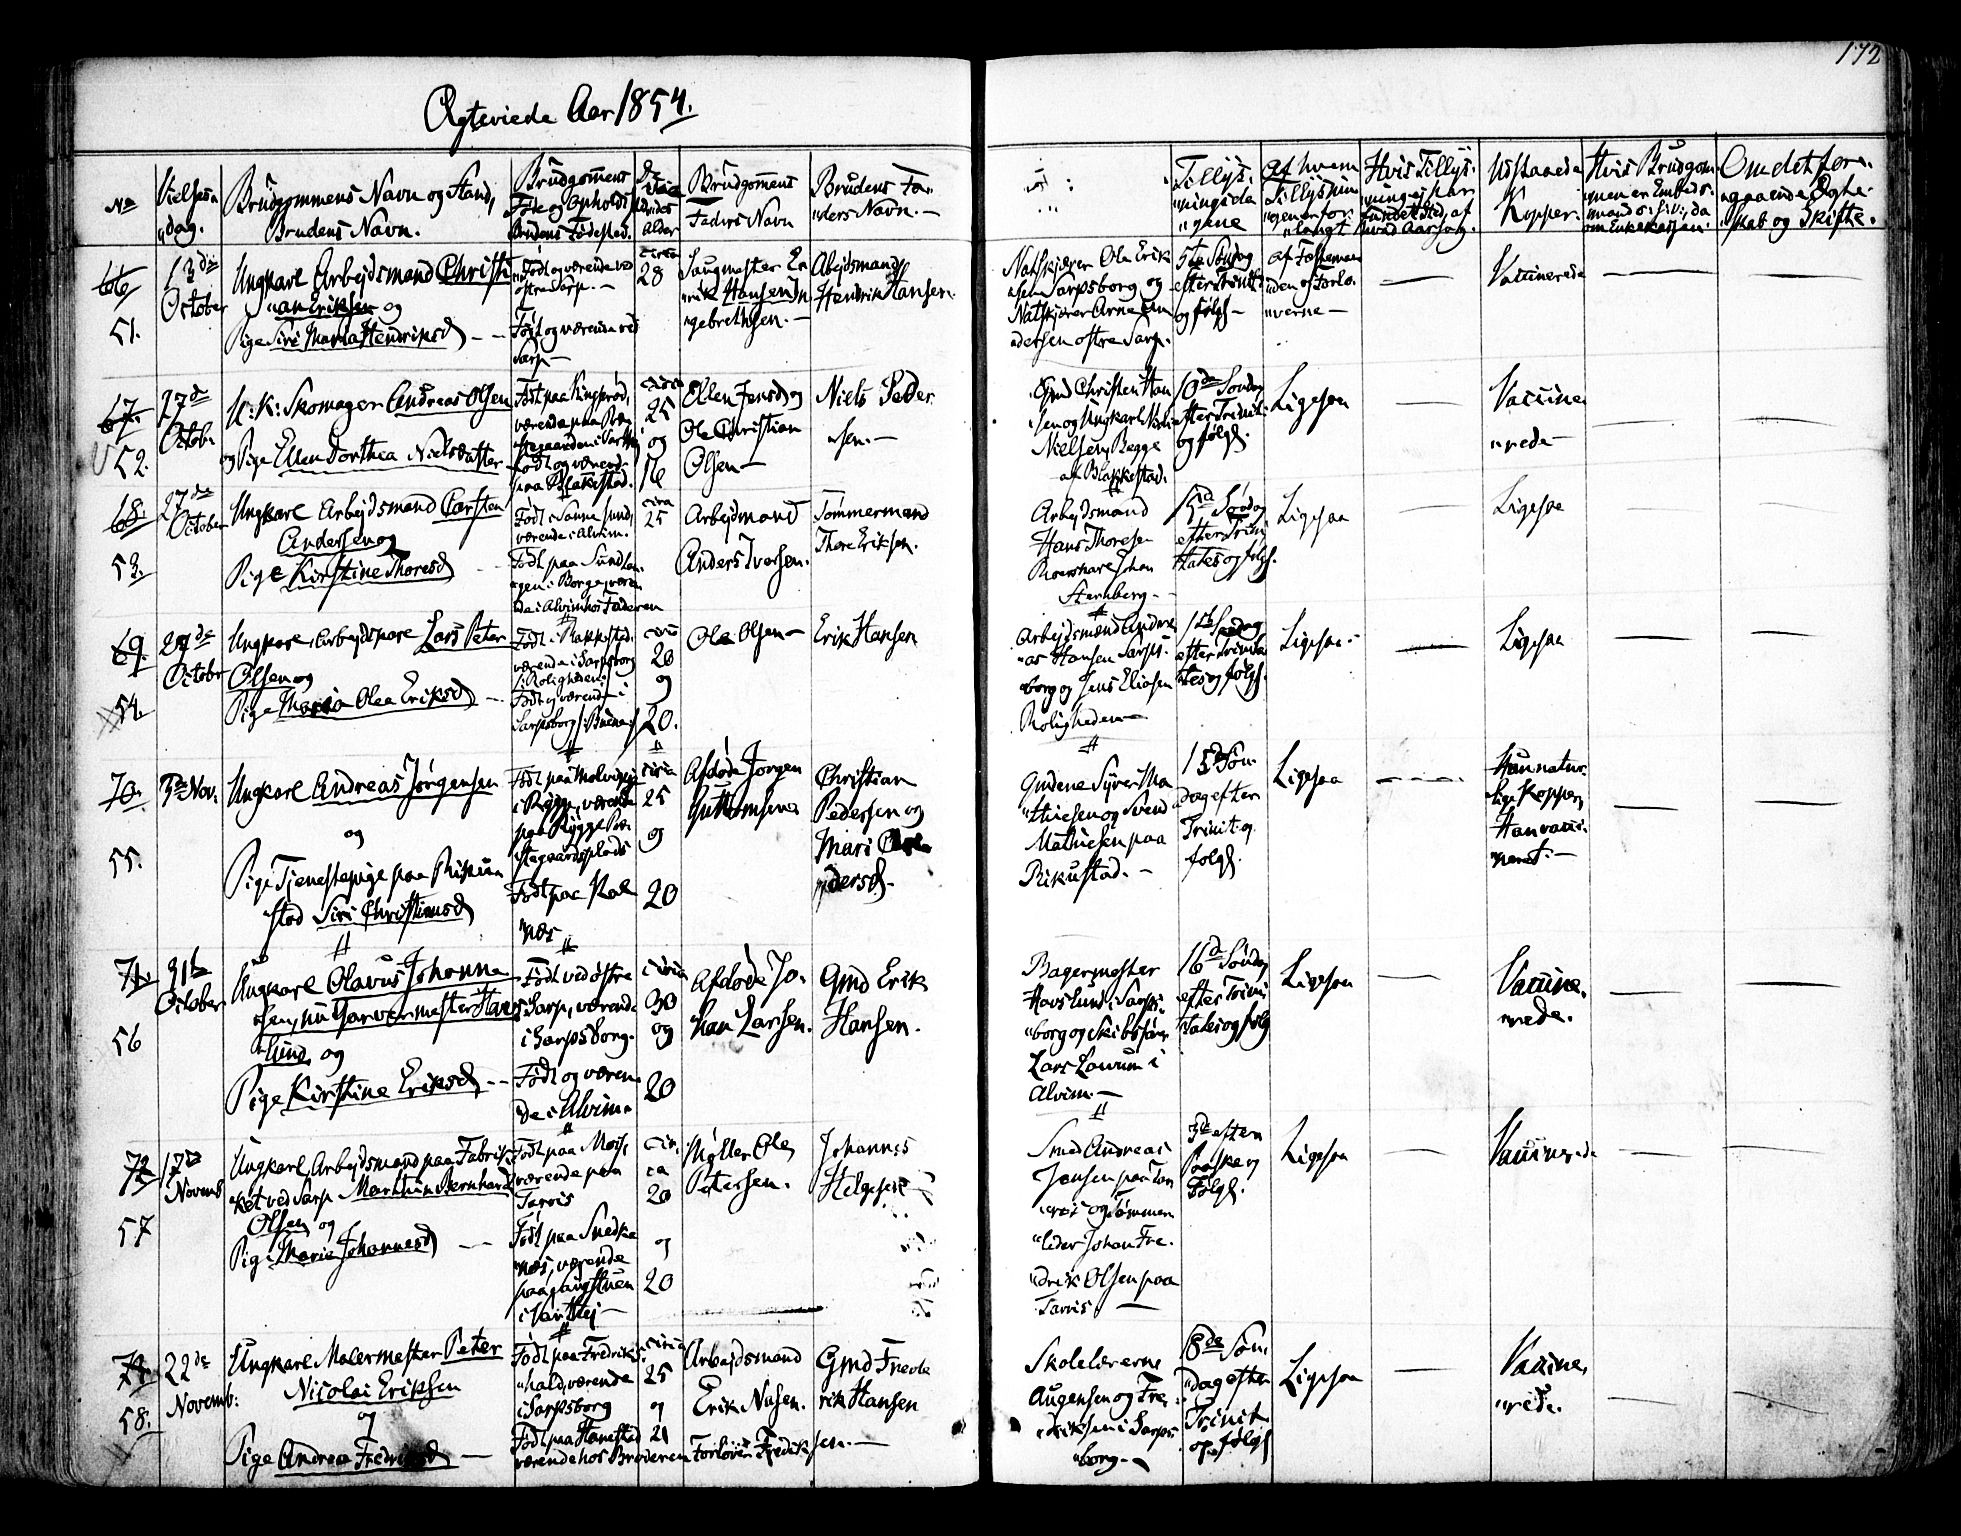 172
Ægteviede Aar 1854.
No
Vielses
"dag.
Brudgommens Navn og Stand,
Brudens Navn.
Brudgomens
Føde og Opholds
Brudens Fødested.
Alder
Brudgomens
Faders Navn
Brudens Fa-
"ders Navn. —
Tillys-
"ningsda
"gene
af hvem
Tillysnin
"gen er for-
"langt
Hvis Tillys-
"ning er skeet
hvad Aarsag.
Udstaaede
Kopper.
Hvis Brudgom
"men er Embeds-
"mand
om Enkekassen
Om det fore-
"gaaende Ægte-
"skab og Skifte.
66
51.
13de
October
Ungkarl Arbeidsmand Christi
"an Eriksen og
Pige Siri Maria Henriksd —
Født og værende ved
østre Sarp. —
Født og værende ved
Sarp —
circa
28
Saugmester Er
"rik Hansen In
"gebrethsen. —
Abejdsmand
Hendrik Hansen.
Natskjører Ole Erik
"sen Sarpsborg og
Natskjører Arne An
"dersen østre Sarp.
5te Søndag
efter Trinit
og følgd —
af Forlo-
"verne —
—
Vaccinerede
—
—
67.
52.
27de
Octob:
U: K: Skomager Andreas Olsen
og Pige Ellen Dorthea Nielsdatter
værende paa Præ-
født og værend-
paa Blakkestad.
circa
25
og
16
Ellen Jensd og
Ole Christian
Olsen —
Niels Peder
"sen. —
Gmd Christen Han
"sen og Ungkarl Niels
Nielsen, Begge
af Blakkestad.
10de Søndag
efter Trinit:
og følgd.
Ligesaa
—
Vaccine
"rede
—
—
68.
53.
27de
October
Ungkarl Arbejdsmand Carsten
Andersen og
Pige Kirstine Thoresd —
Født i Sannesund,
værende i Alvim.
Født paa Sundløk-
"gen i Borge, væren
"de i Alvim hos Faderen
circa
25
Arbejdsmand
Anders Iversen.
Tømmermand
Thore Eriksen.
Arbejdsmand
Hans Thoresen
Johan
Sternberg. —
15de Søndag
efter Trini
"tates og følgd.
Ligesaa
—
Ligesaa
—
—
69.
54.
29de
Octobr
Ungkarl, Arbejdskarl Lars Peter
Olsen og
Pige Maria Olea Eriksd —
Født i Rakkestad,
værende i Sarpsborg
/: Roligheden :/
Født og værende i
Sarpsborg
circa
20
og
20.
Ole Olsen —
Erik Hansen
Arbejdsmænd Andre
"as Hansen Sarps-
"borg og Jens Eliasen
Roligheden —
efter Trinita
"tes og følgd.
Ligesaa. —
—
Ligesaa
—
—
70.
55.
3de Nov.
Ungkarl Andreas Jørgensen
og
Pige Tjenestepige paa
"stad Siri Christiansd
i Rygge, værende
paa Rygge Præ-
"stegaardsplads
Født paa Kal
"næs
circa
25
og
20
Afdøde Jørgen
Guttormsen
Christian
Pedersen og
Mari
"dersd. —
Gmdene Syver Ma
"thiesen og Svend
Mathiesen paa
Rikustad. —
15de Søn-
"dag efter
Trinit. og
følgd.
Ligesaa
—
Hun natur-
"lige Kopper,
Han vacci-
"neret. —
—
—
71.
56
31te
October
Ungkarl Olavus Johanne
"sen, nu Garvermester Havs
"lund, og
Pige Kirstine Eriksd —
Født ved østre
Sarp, værende
i Sarpsborg.
Født og væren-
"de i Alvim.
circa
30
og
20
Afdøde Jo-
"han Larsen.
Gmd Erik
Hansen.
Bagermester
Havslund i Sarps-
"borg og Skibsfører
Lars Laurum i
Alvim. —
16de Søndag
efter Trini
"tates og følg
Ligesaa
—
Vaccine-
"rede.
—
—
72
57
17de
Novemb
Ungkarl, Arbejdsmand paa Fabrik-
"ket ved Sarp Marthin Bernhard
Olsen og
Pige Maria Johannesd —
Født paa Moss,
værende paa
Tarris
Født paa Snedke
"næs, værende
paa Saugstuen
cir-
ca
20
og
20
Møller Ole
Petersen.
Johannes
Helgesen
Smed Andreas
Jansen paa
og Tømmer
"leder Johan Fre-
"drik Olsen paa
Tarris —
3de efter
Paaske og
Følgd.
Ligesaa
—
Vaccinerede
—
—
58.
22de
Novemb:
Ungkarl Malermester Peter
Nicolai Eriksen
og
Pige Andrea —
Født paa Fredriks-
"hald, værende
i Sarpsborg
Født paa Hanestad
værende hos Broderen
circa
25
og
21
Arbejdsmand
Erik
Forlover Fredriksen. —
Gmd Frede
rik Hansen
Skolelærerne
Augensen og Fre-
"driksen i Sarps
"borg. —
18de Søn-
"dag efter
Trinit
og følgd
Ligesaa
—
Vaccine-
"rede.
—
—